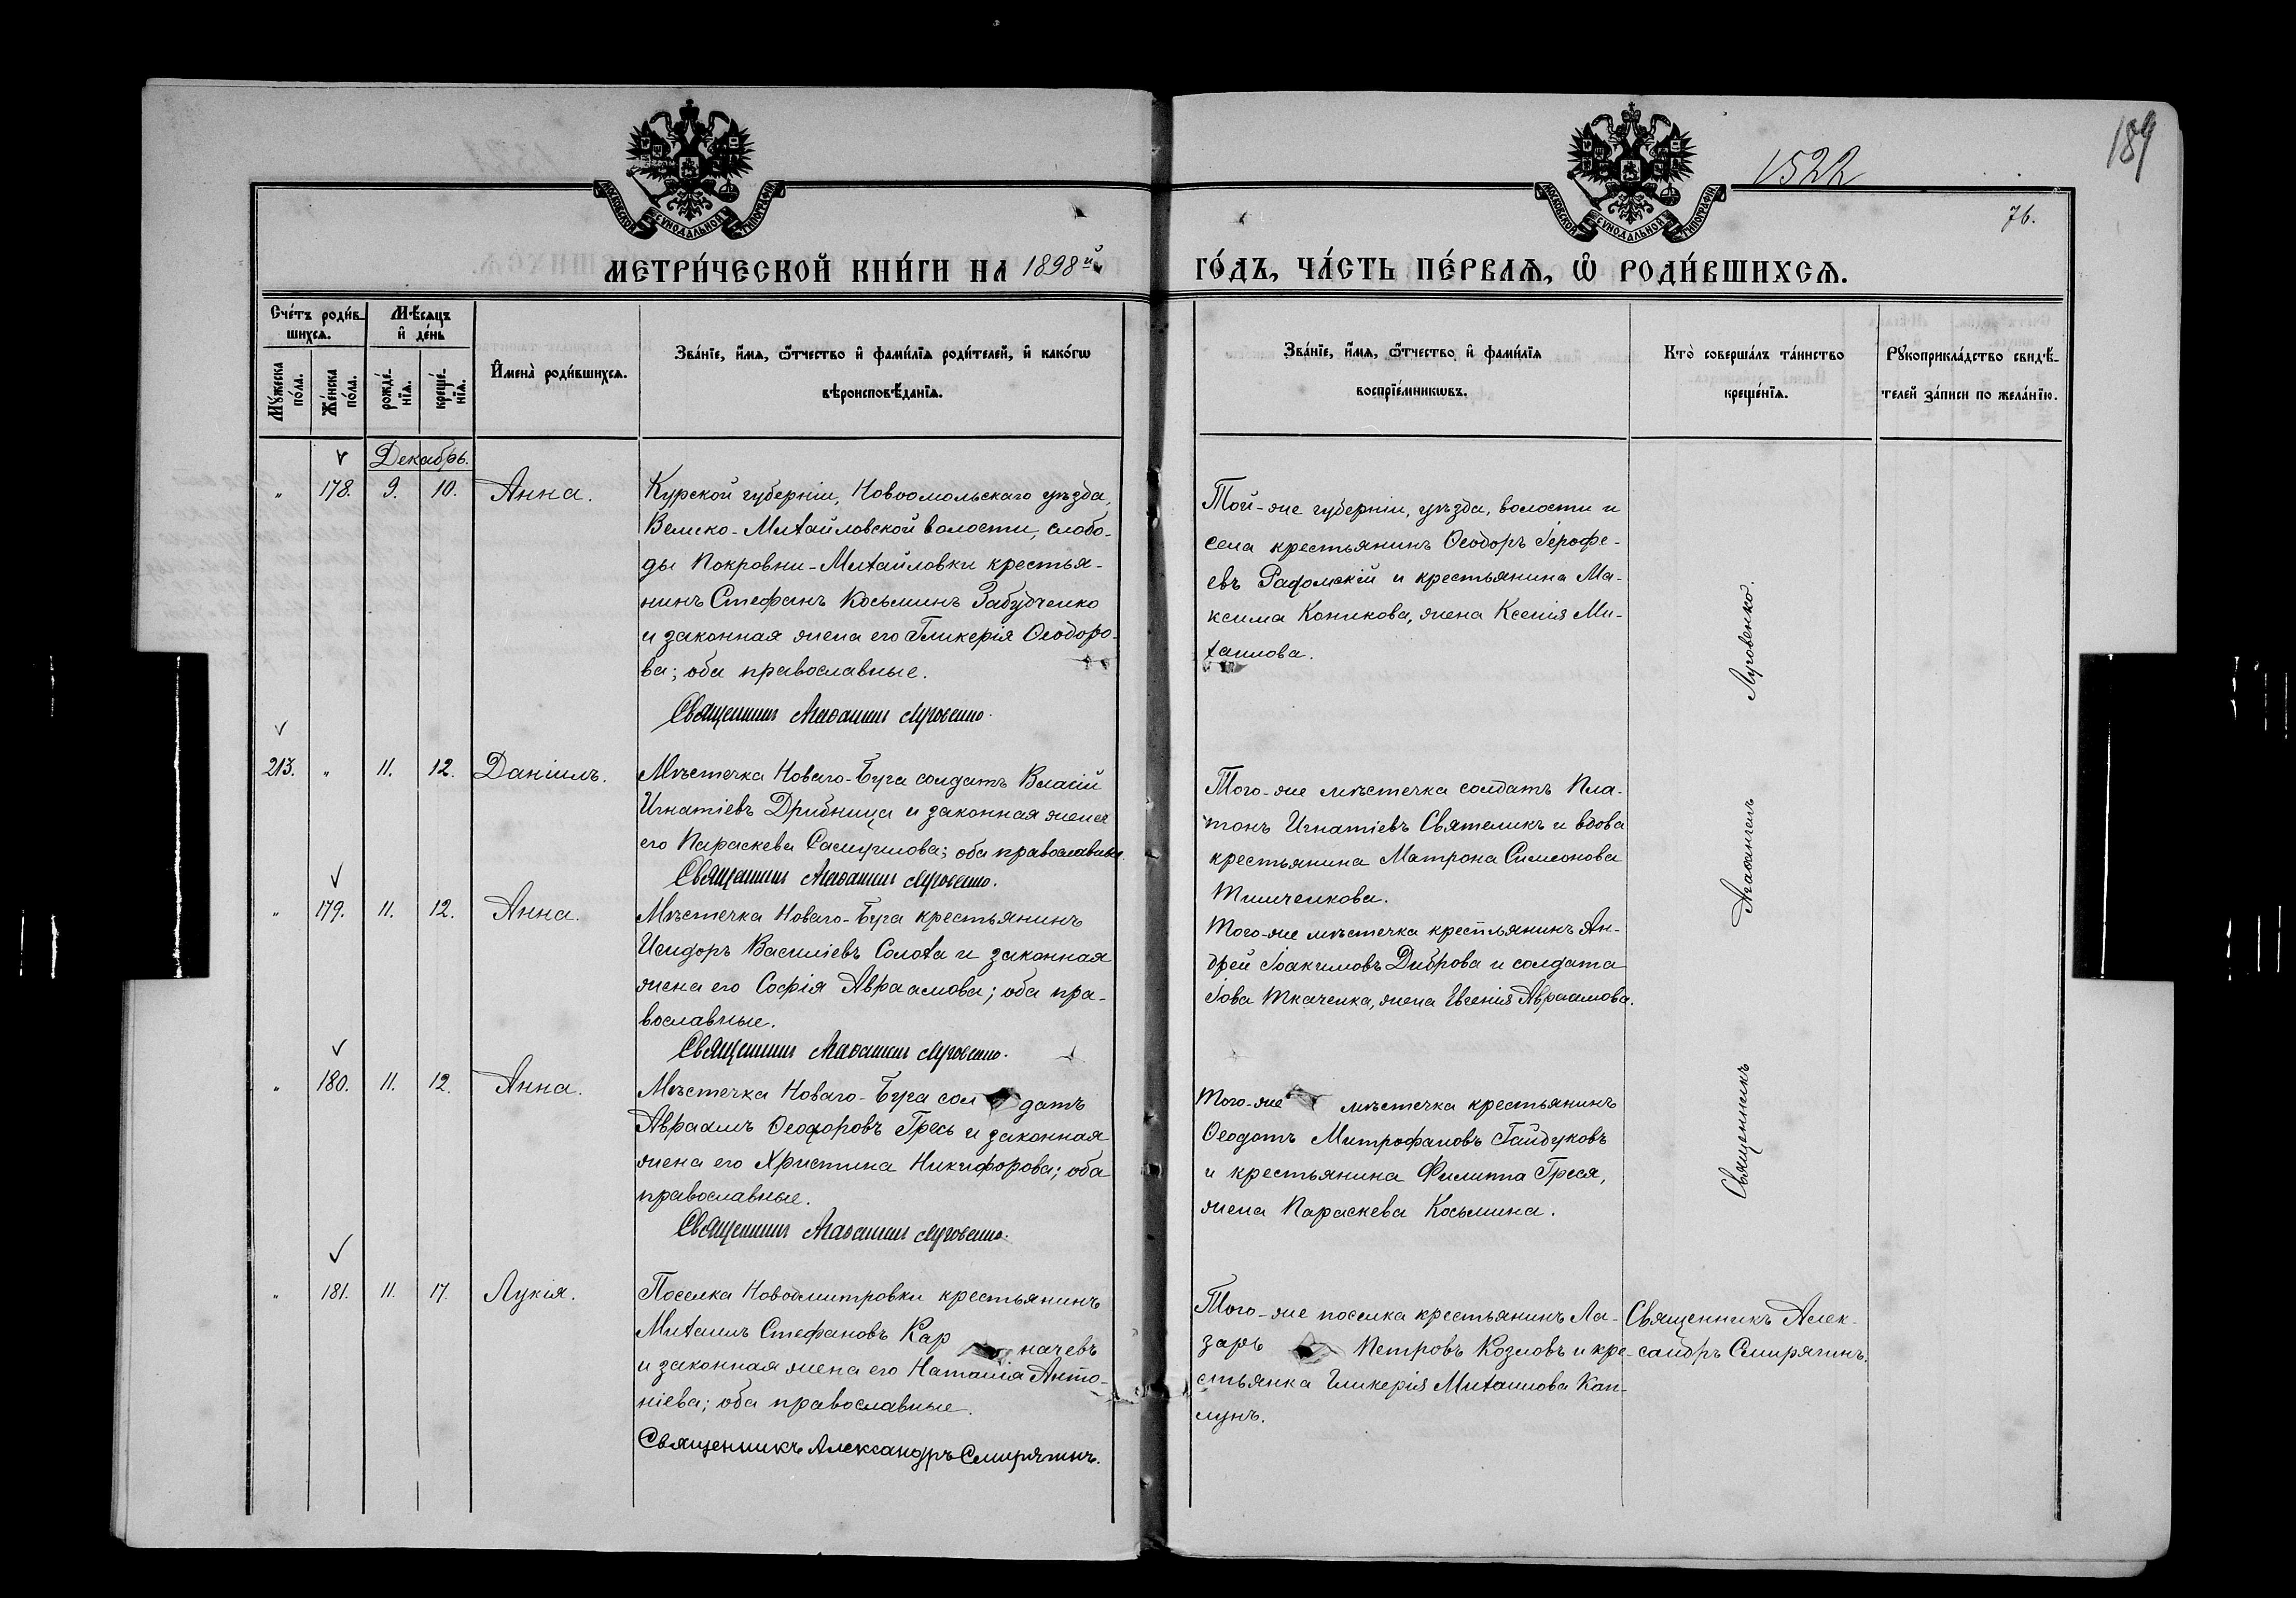 189
1522
76.
МОСКОВСКОЙ СѴНОДАЛЬНОЙ ТИПОГРАФІИ
МОСКОВСКОЙ СѴНОДАЛЬНОЙ ТИПОГРАФІИ
МЕТРИ́ЧЕСКОЙ КНИ́ГИ НА 1898й
ГО́ДЪ, ЧА́СТЬ ПЕ́РВАѦ, Ѿ РОДИ́ВШИХСѦ.
Сче́тъ роди́в-
шихсѧ.
Мѣ́сѧцъ
и҆ де́нь
Мꙋ́жеска
по́ла.
Же́нска
по́ла.
рожде́-
нїѧ.
креще́-
нїѧ.
И҆мена̀ роди́вшихсѧ.
Зва́нїе, и҆́мѧ, ѻ҆́тчество и҆ фами́лїѧ роди́телей, и҆ како́гѡ
вѣроисповѣ́данїѧ.
Зва́нїе, и҆́мѧ, ѻ҆́тчество и҆ фами́лїѧ
воспрїе́мникѡвъ.
Кто̀ соверша́лъ та́инство
креще́нїѧ.
Рꙋкоприкла́дство свидѣ́-
телей за́писи по жела́нїю.
Декабрь.
" 178. 9. 10. Анна.
Курской губерніи, Новоомольскаго уѣзда,
Велико-Михайловской волости, слобо-
ды Покровки-Михайловки крестья-
нинъ Стефанъ Косьминъ Забудченко
и законная жена его Гликерія Ѳеодоро-
ва; оба православные.
Священникъ Агаѳангелъ Луговенко.
Той-же губерніи, уѣзда, волости и
села крестьянинъ Ѳеодоръ Іерофе-
евъ Радомскій и крестьянина Ма-
ксима Коникова, жена Ксенія Ми-
хаилова.
213. " 11. 12. Даніилъ.
Мѣстечка Новаго-Буга солдатъ Власій
Игнатіевъ Дрибница и законная жена
его Параскева Самуилова; оба православные.
Священникъ Агаѳангелъ Луговенко.
Того-же мѣстечка солдатъ Пла-
тонъ Игнатіевъ Святеликъ и вдова
крестьянина Матрона Симеонова
Тимченкова.
" 179. 11. 12. Анна.
Мѣстечка Новаго-Буга крестьянинъ
Исидоръ Василіевъ Солоха и законная
жена его Софія Авраамова; оба пра-
вославные.
Священникъ Агаѳангелъ Луговенко.
Того-же мѣстечка крестьянинъ Ан-
дрей Іоакимовъ Диброва и солдата
Іова Ткаченка, жена Евгенія Авраамова.
" 180. 11. 12. Анна.
Мѣстечка Новаго-Буга солдатъ
Авраамъ Ѳеодоровъ Гресь и законная
жена его Христина Никифорова; оба
православные.
Священникъ Агаѳангелъ Луговенко.
Того-же мѣстечка крестьянинъ
Ѳеодотъ Митрофановъ Гайдуковъ
и крестьянина Филиппа Греся,
жена Параскева Косьмина.
Священникъ Агаѳангелъ Луговенко.
" 181. 11. 17. Лукія.
Поселка Новодмитровки крестьянинъ
Михаилъ Стефановъ Кар начевъ
и законная жена его Наталія Анто-
ніева; оба православные.
Священникъ Александръ Смирягинъ.
Того-же поселка крестьянинъ Ла-
зарь Петровъ Козловъ и кре-
стьянка Гликерія Михаилова Кап-
лунъ.
Священникъ Алек-
сандръ Смирягинъ.